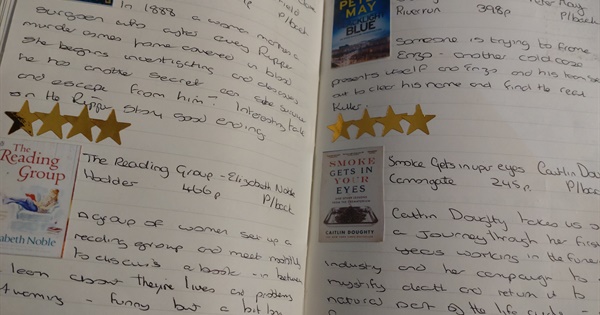 P/back
In 1888 a woman marries a
surgeon who after every Ripper
murder comes home covered in blood
She begins investigating and discovers
he has another secret can she survive
and escape from him - Interesting take
on the Ripper story good ending.
The
Reading
Group
Elizabeth Noble
The Reading Group - Elizabeth Noble
Hodder 466p P/back
A group of women set up a
reading group and meet monthly
to discuss a book - in between
learn about they're lives and problems
funny but a bit
PETER
MAY
BLUE
Peter May
Riverrun 398p P/back
Someone is trying to frame
Enzo - another cold case
presents itself and Enzo and his team set
out to clear his name and find the real
Killer.
SMOKE
GETS IN
YOUR
EYES
CAITLIN DOUGHTY
Smoke Gets in your eyes Caitlin Dou
Canongate 245p. P/back
Caitlin Doughty takes us o
a Journey through her first
years working in the funera
industry and her campaign to
mystify death and return it to
natural part of the life cycle -